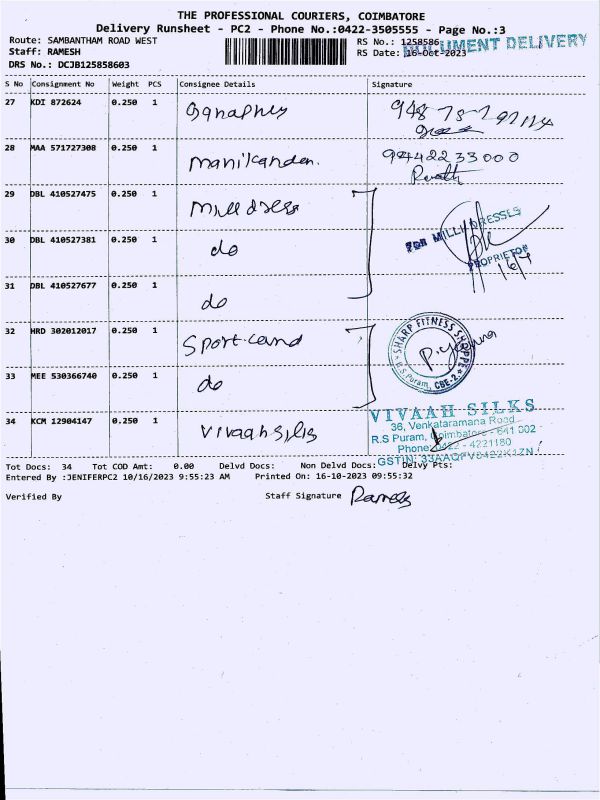 THE PROFESSIONAL COURIERS, COIMBATORE
Delivery Runsheet - PC2 - Phone No.:0422-3505555 - Page No.:3
Route: SAMBANTHAM ROAD WEST
RS No.: 1258586
DOCUMENT DELIVERY
Staff: RAMESH
RS Date: 16-Oct-2023
DRS No.: DCJB125858603
S No Consignment No Weight PCS Consignee Details Signature
27 KDI 872624 0.250 1 Ganaphy
28 MAA 571727308 0.250 1 manikanden. 9442233000
29 DBL 410527475 0.250 1 Milldress
FOR MILLI DRESSES
30 DBL 410527381 0.250 1 do
PROPRIETOR
31 DBL 410527677 0.250 1 do
32 HRD 302012017 0.250 1 Sport-Land
SHARP FITNESS SHOPPE
R.S Puram, CBE-2.
33 MEE 530366740 0.250 1 do
34 KCM 12904147 0.250 1 Vivaahsilks
VIVAAH SILKS
36, Venkataramana Road
R.S Puram, Coimbatore - 641 002
Phone: 0422 - 4221180
GSTIN:
Tot Docs: 34 Tot COD Amt: 0.00 Delvd Docs: Non Delvd Docs: Delvy Pts:
Entered By :JENIFERPC2 10/16/2023 9:55:23 AM Printed On: 16-10-2023 09:55:32
Verified By Staff Signature Ramesh